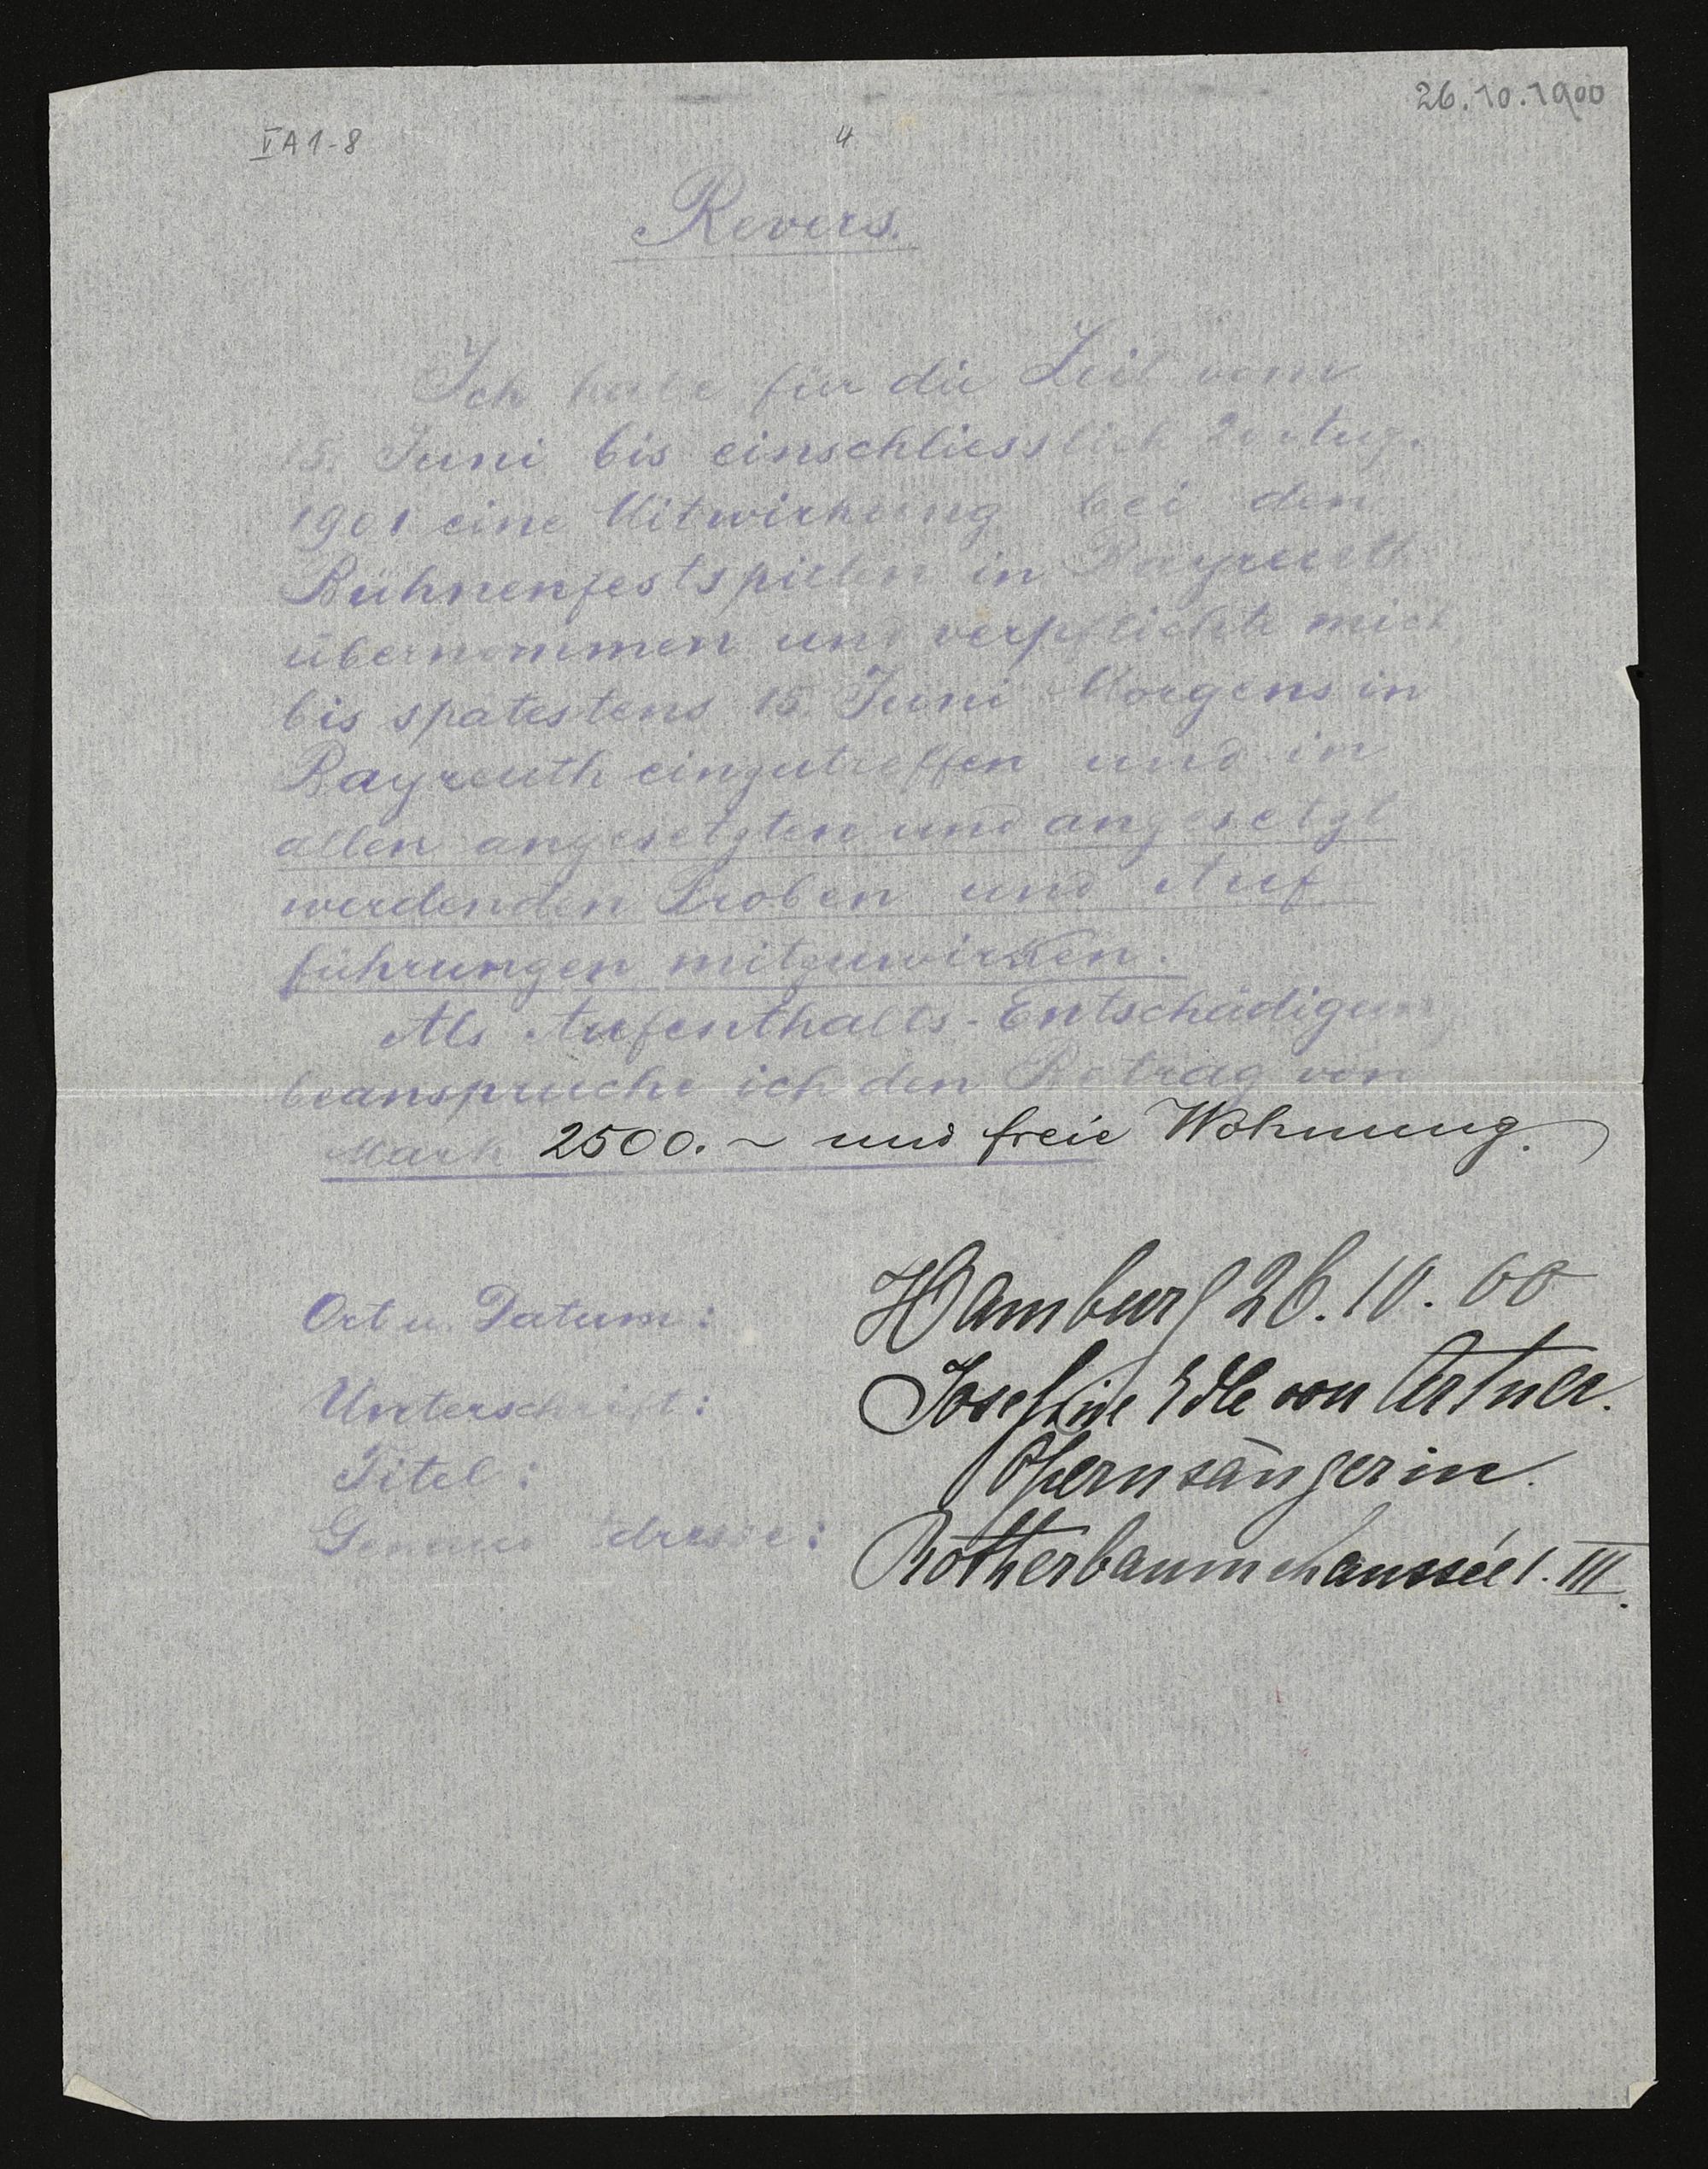 26.10.1900
V A 1-8
4
Revers.
Ich habe für die Zeit vom
15. Juni bis einschliesslich 20 Aug.
1901 eine Mitwirkung bei den
Bühnenfestspielen in Bayreuth
übernommen und verpflichte mich
bis spätestens 15. Juni Morgens in
Bayreuth einzutreffen und in
allen angesetzten und angesetzt
werdenden Proben und Auf
führungen mitzuwirken.
Als Aufenthalts-Entschädigung
beanspruche ich den Betrag von
Mark 2500.~ und freie Wohnung.
Ort u. Datum: Hamburg 26.10.00
Unterschrift: Josefine Edle von Artner.
Titel: Opernsängerin.
Genaue Adresse: Rotherbaumchaussée 1. III.